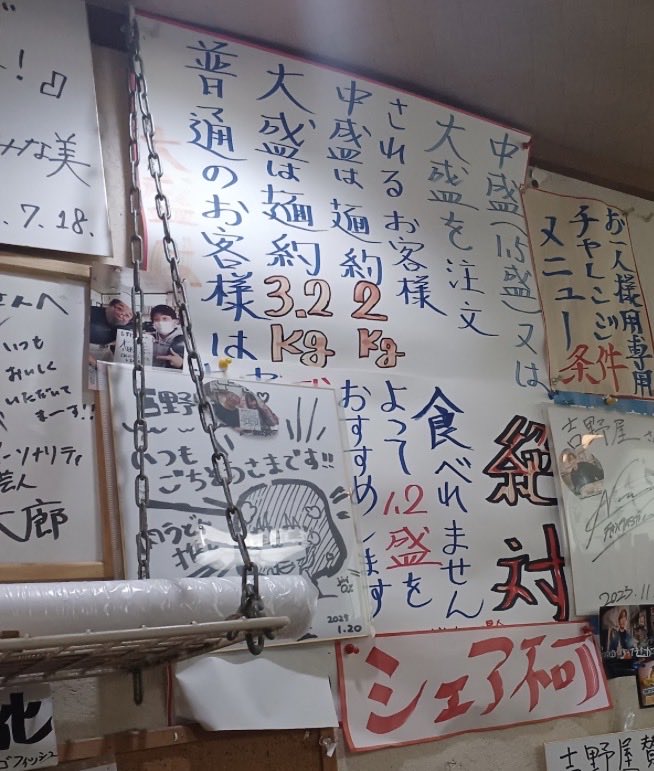 中盛(1.5盛)又は
大盛を注文
されるお客様
中盛は麺約2Kg
大盛は麺約3.2Kg
普通のお客様は
絶対
食べれません
よって1.2盛を
おすすめします
シェア不可
お一人様用専用
チャレンジ
メニュー条件
!』
みな美
.7.18.
さんへ
いつも
おいしく
いただいて
まーす!!
パーソナリティ
芸人
太郎
吉野
いつも
ごちそうさまです!!
肉うどん
2023
1.20
吉野屋さ
2023.11
化
ゴフィッシュ
吉野屋賛